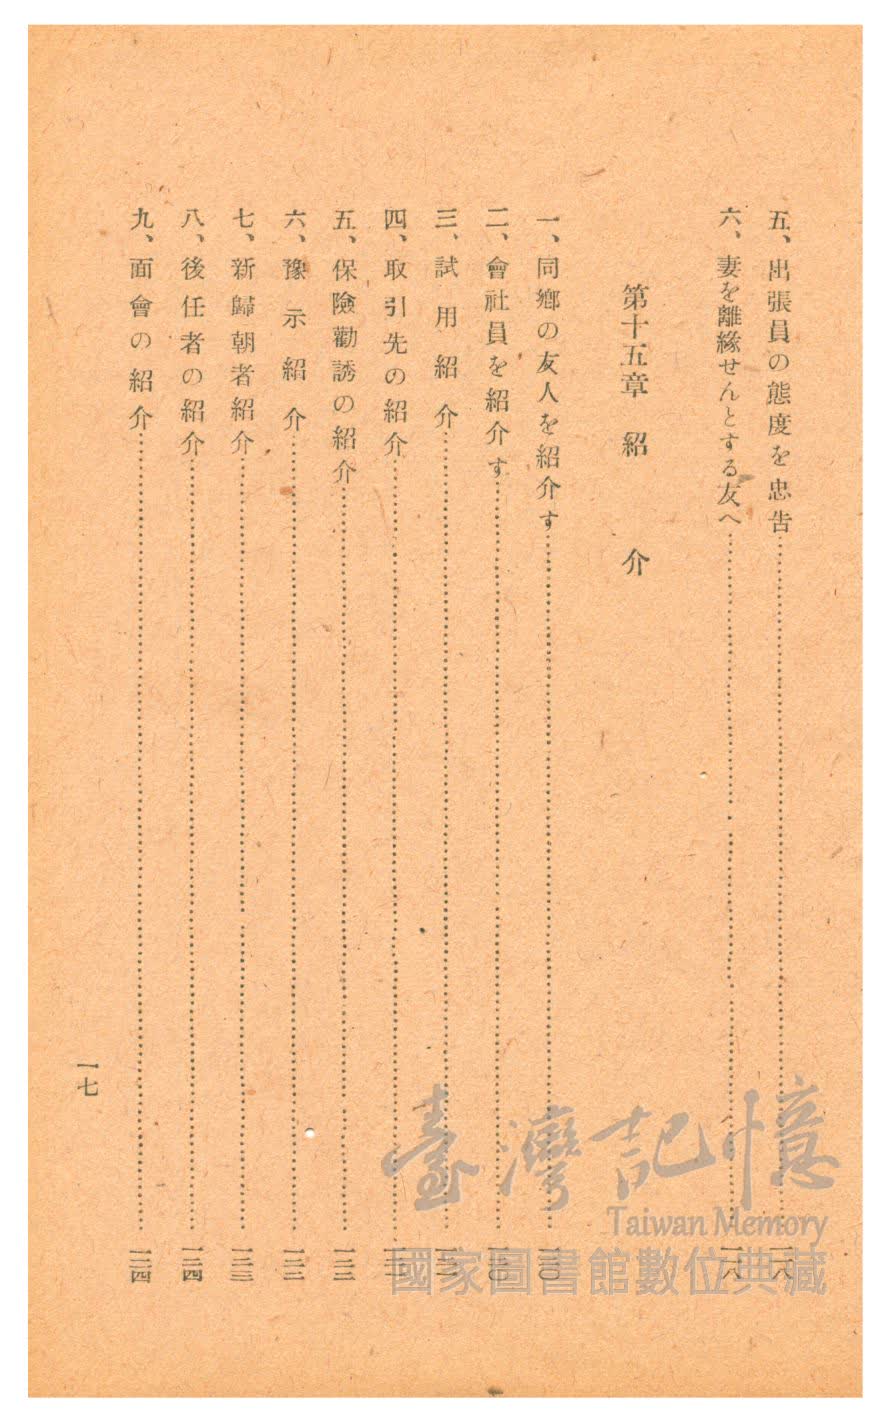 五、出張員の態度を忠告……一一八
六、妻を離緣せんとする友へ……一一八
第十五章 紹介
一、同鄕の友人を紹介す……一二〇
二、會社員を紹介す……一二〇
三、試用紹介……
四、取引先の紹介……
五、保險勸誘の紹介……一二二
六、豫示紹介……
七、新歸朝者紹介……一二三
八、後任者の紹介……一二四
九、面會の紹介……一二四
一七
臺灣記憶
Taiwan Memory
國家圖書館數位典藏